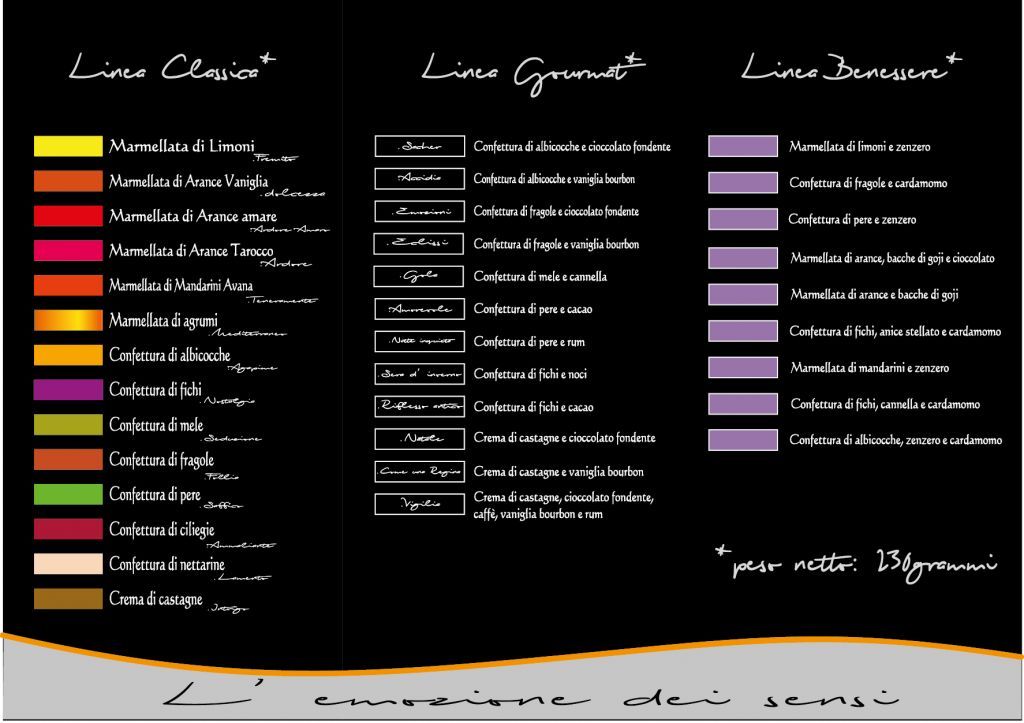 Linea Classica*
Marmellata di Limoni
.Fremito
Marmellata di Arance Vaniglia
.dolcezza
Marmellata di Arance amare
.Ardore Amaro
Marmellata di Arance Tarocco
.Ardore
Marmellata di Mandarini Avana
.Teneramente
Marmellata di agrumi
.Mediterraneo
Confettura di albicocche
Confettura di fichi
.Nostalgia
Confettura di mele
.Seduzione
Confettura di fragole
.Follia
Confettura di pere
.Soffio
Confettura di ciliegie
.Ammaliante
Confettura di nettarine
.Lamento
Crema di castagne
Linea Gourmat*
.Sacher
Confettura di albicocche e cioccolato fondente
.Accidia
Confettura di albicocche e vaniglia bourbon
.Emozioni
Confettura di fragole e cioccolato fondente
.Eclissi
Confettura di fragole e vaniglia bourbon
.Gola
Confettura di mele e cannella
.Amorevole
Confettura di pere e cacao
.Note inquiete
Confettura di pere e rum
.Sera d' inverno
Confettura di fichi e noci
.Riflesso antico
Confettura di fichi e cacao
.Natale
Crema di castagne e cioccolato fondente
.Come una Regina
Crema di castagne e vaniglia bourbon
.Vigilia
Crema di castagne, cioccolato fondente,
caffè, vaniglia bourbon e rum
Linea Benessere*
Marmellata di limoni e zenzero
Confettura di fragole e cardamomo
Confettura di pere e zenzero
Marmellata di arance, bacche di goji e cioccolato
Marmellata di arance e bacche di goji
Confettura di fichi, anice stellato e cardamomo
Marmellata di mandarini e zenzero
Confettura di fichi, cannella e cardamomo
Confettura di albicocche, zenzero e cardamomo
*peso netto: 230grammi
L' emozione dei sensi